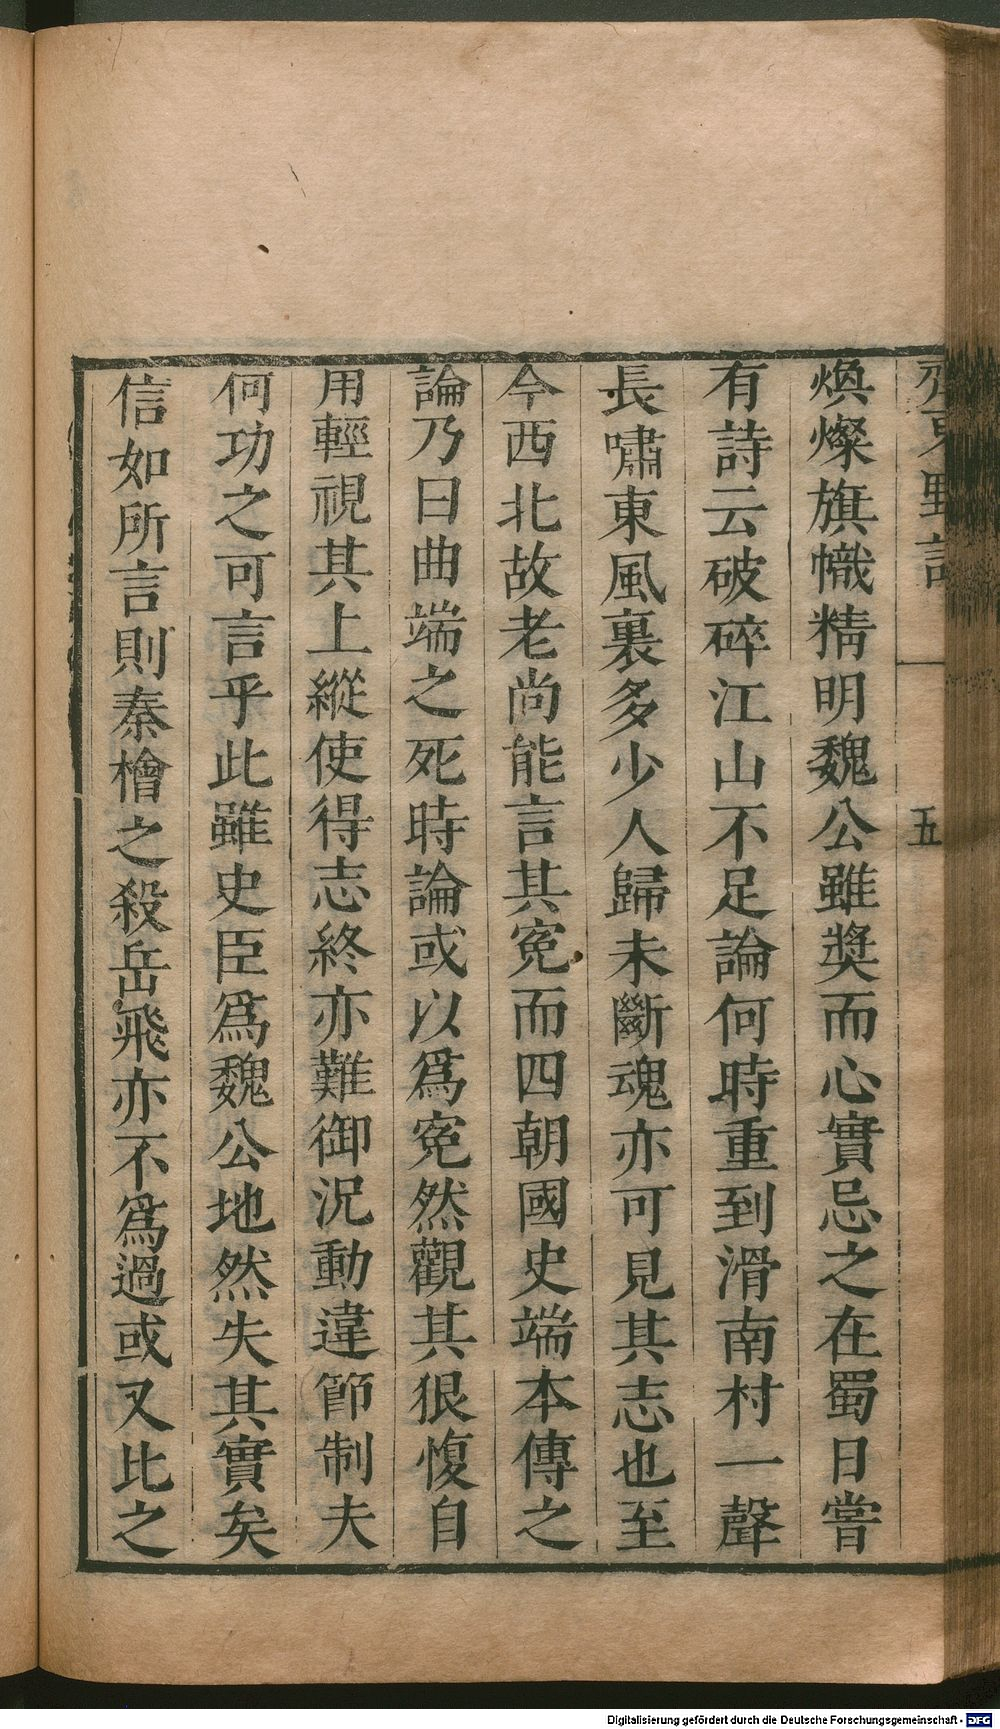 齊東野語
五
煥燦旗幟精明魏公雖奬而心實忌之在蜀日嘗
有詩云破碎江山不足論何時重到渭南村一聲
長嘯東風裏多少人歸未斷魂亦可見其志也至
今西北故老尚能言其冤而四朝國史端本傳之
論乃曰曲端之死時論或以爲冤然觀其狠愎自
用輕視其上縱使得志終亦難御況動違節制夫
何功之可言乎此雖史臣爲魏公地然失其實矣
信如所言則秦檜之殺岳飛亦不爲過或又比之
Digitalisierung gefördert durch die Deutsche Forschungsgemeinschaft - DFG